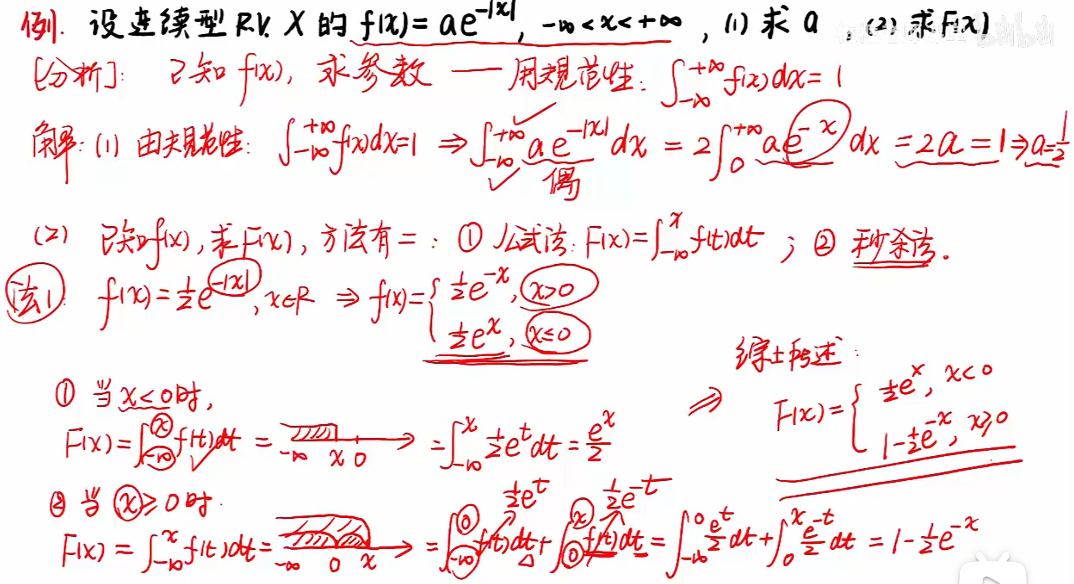 例. 设连续型 R.V. X 的 f(x)= ae^{-|x|}, -∞<x<+∞, (1) 求 a, (2) 求 F(x)
[分析]: 已知 f(x), 求参数 — 用规范性: ∫_{-∞}^{+∞} f(x)dx = 1
解: (1) 由规范性: ∫_{-∞}^{+∞} f(x)dx=1 ⇒ ∫_{-∞}^{+∞} ae^{-|x|} dx = 2∫_0^{+∞} ae^{-x} dx = 2a = 1 ⇒ a=1/2
偶
(2) 已知 f(x), 求 F(x), 方法有二: ① 公式法: F(x)=∫_{-∞}^x f(t)dt ; ② 秒杀法.
法1 f(x)=1/2 e^{-|x|}, x∈R ⇒ f(x)={ 1/2 e^{-x}, x>0
1/2 e^x, x≤0
① 当 x<0 时,
F(x)=∫_{-∞}^x f(t)dt = -∞ x 0 = ∫_{-∞}^x 1/2 e^t dt = e^x/2
② 当 x≥0 时
1/2 e^t 1/2 e^{-t}
F(x) = ∫_{-∞}^x f(t)dt = -∞ 0 x = ∫_{-∞}^0 f(t)dt + ∫_0^x f(t)dt = ∫_{-∞}^0 e^t/2 dt + ∫_0^x e^{-t}/2 dt = 1 - 1/2 e^{-x}
⇒ 综上所述:
F(x)={ 1/2 e^x, x<0
1-1/2 e^{-x}, x≥0